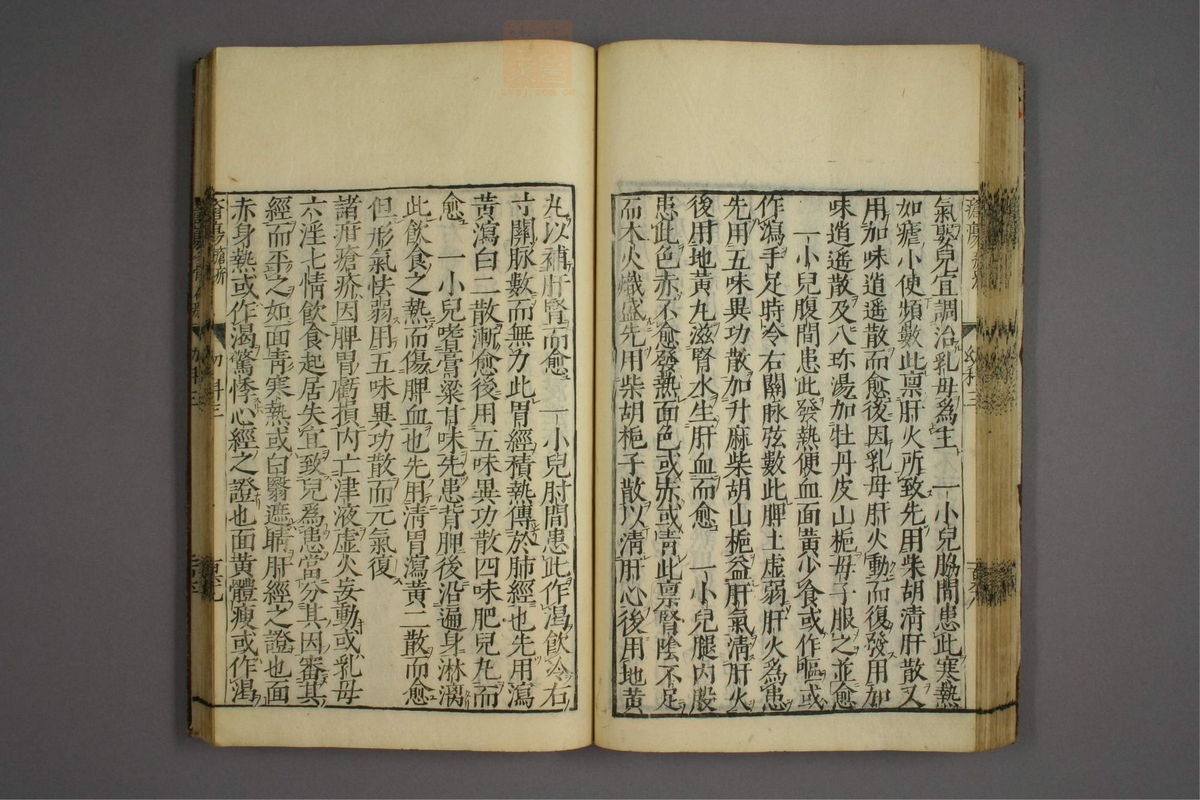 氣嬰兒宜調治乳母爲主　一小兒脇間患此寒熱
如瘧小便頻數此禀肝火所致先用柴胡清肝散又
用加味逍遥散而愈後因乳母肝火動而復發用加
味逍遥散及八珎湯加牡丹皮山梔母子服之並愈
一小兒腹間患此發熱便血面黄少食或作嘔或
作瀉手足時冷右關脉弦數此脾土虚弱肝火爲患
先用五味異功散加升麻柴胡山梔益肝氣清肝火
後用地黄丸滋腎水生肝血而愈　一小兒腿内股
患此色赤不愈發熱面色或赤或青此禀腎陰不足
而木火熾盛先用柴胡梔子散以清肝心後用地黄
丸以補肝腎而愈　一小兒肘間患此作渴飲冷右
寸關脉數而無力此胃經積熱傳於肺經也先用瀉
黄瀉白二散漸愈後用五味異功散四味肥兒丸而
愈　一小兒嗜膏粱甘味先患背胛後沿遍身淋漓
此飲食之熱而傷脾血也先用清胃瀉黄二散而愈
但形氣怯弱用五味異功散而元氣復
諸疳瘡疥因脾胃虧損内亡津液虚火妄動或乳母
六淫七情飲食起居失宜致兒爲患當分其因審其
經而平之如面青寒熱或白翳遮睛肝經之證也面
赤身熱或作渴驚悸心經之證也面黄體瘦或作渴
幼科三